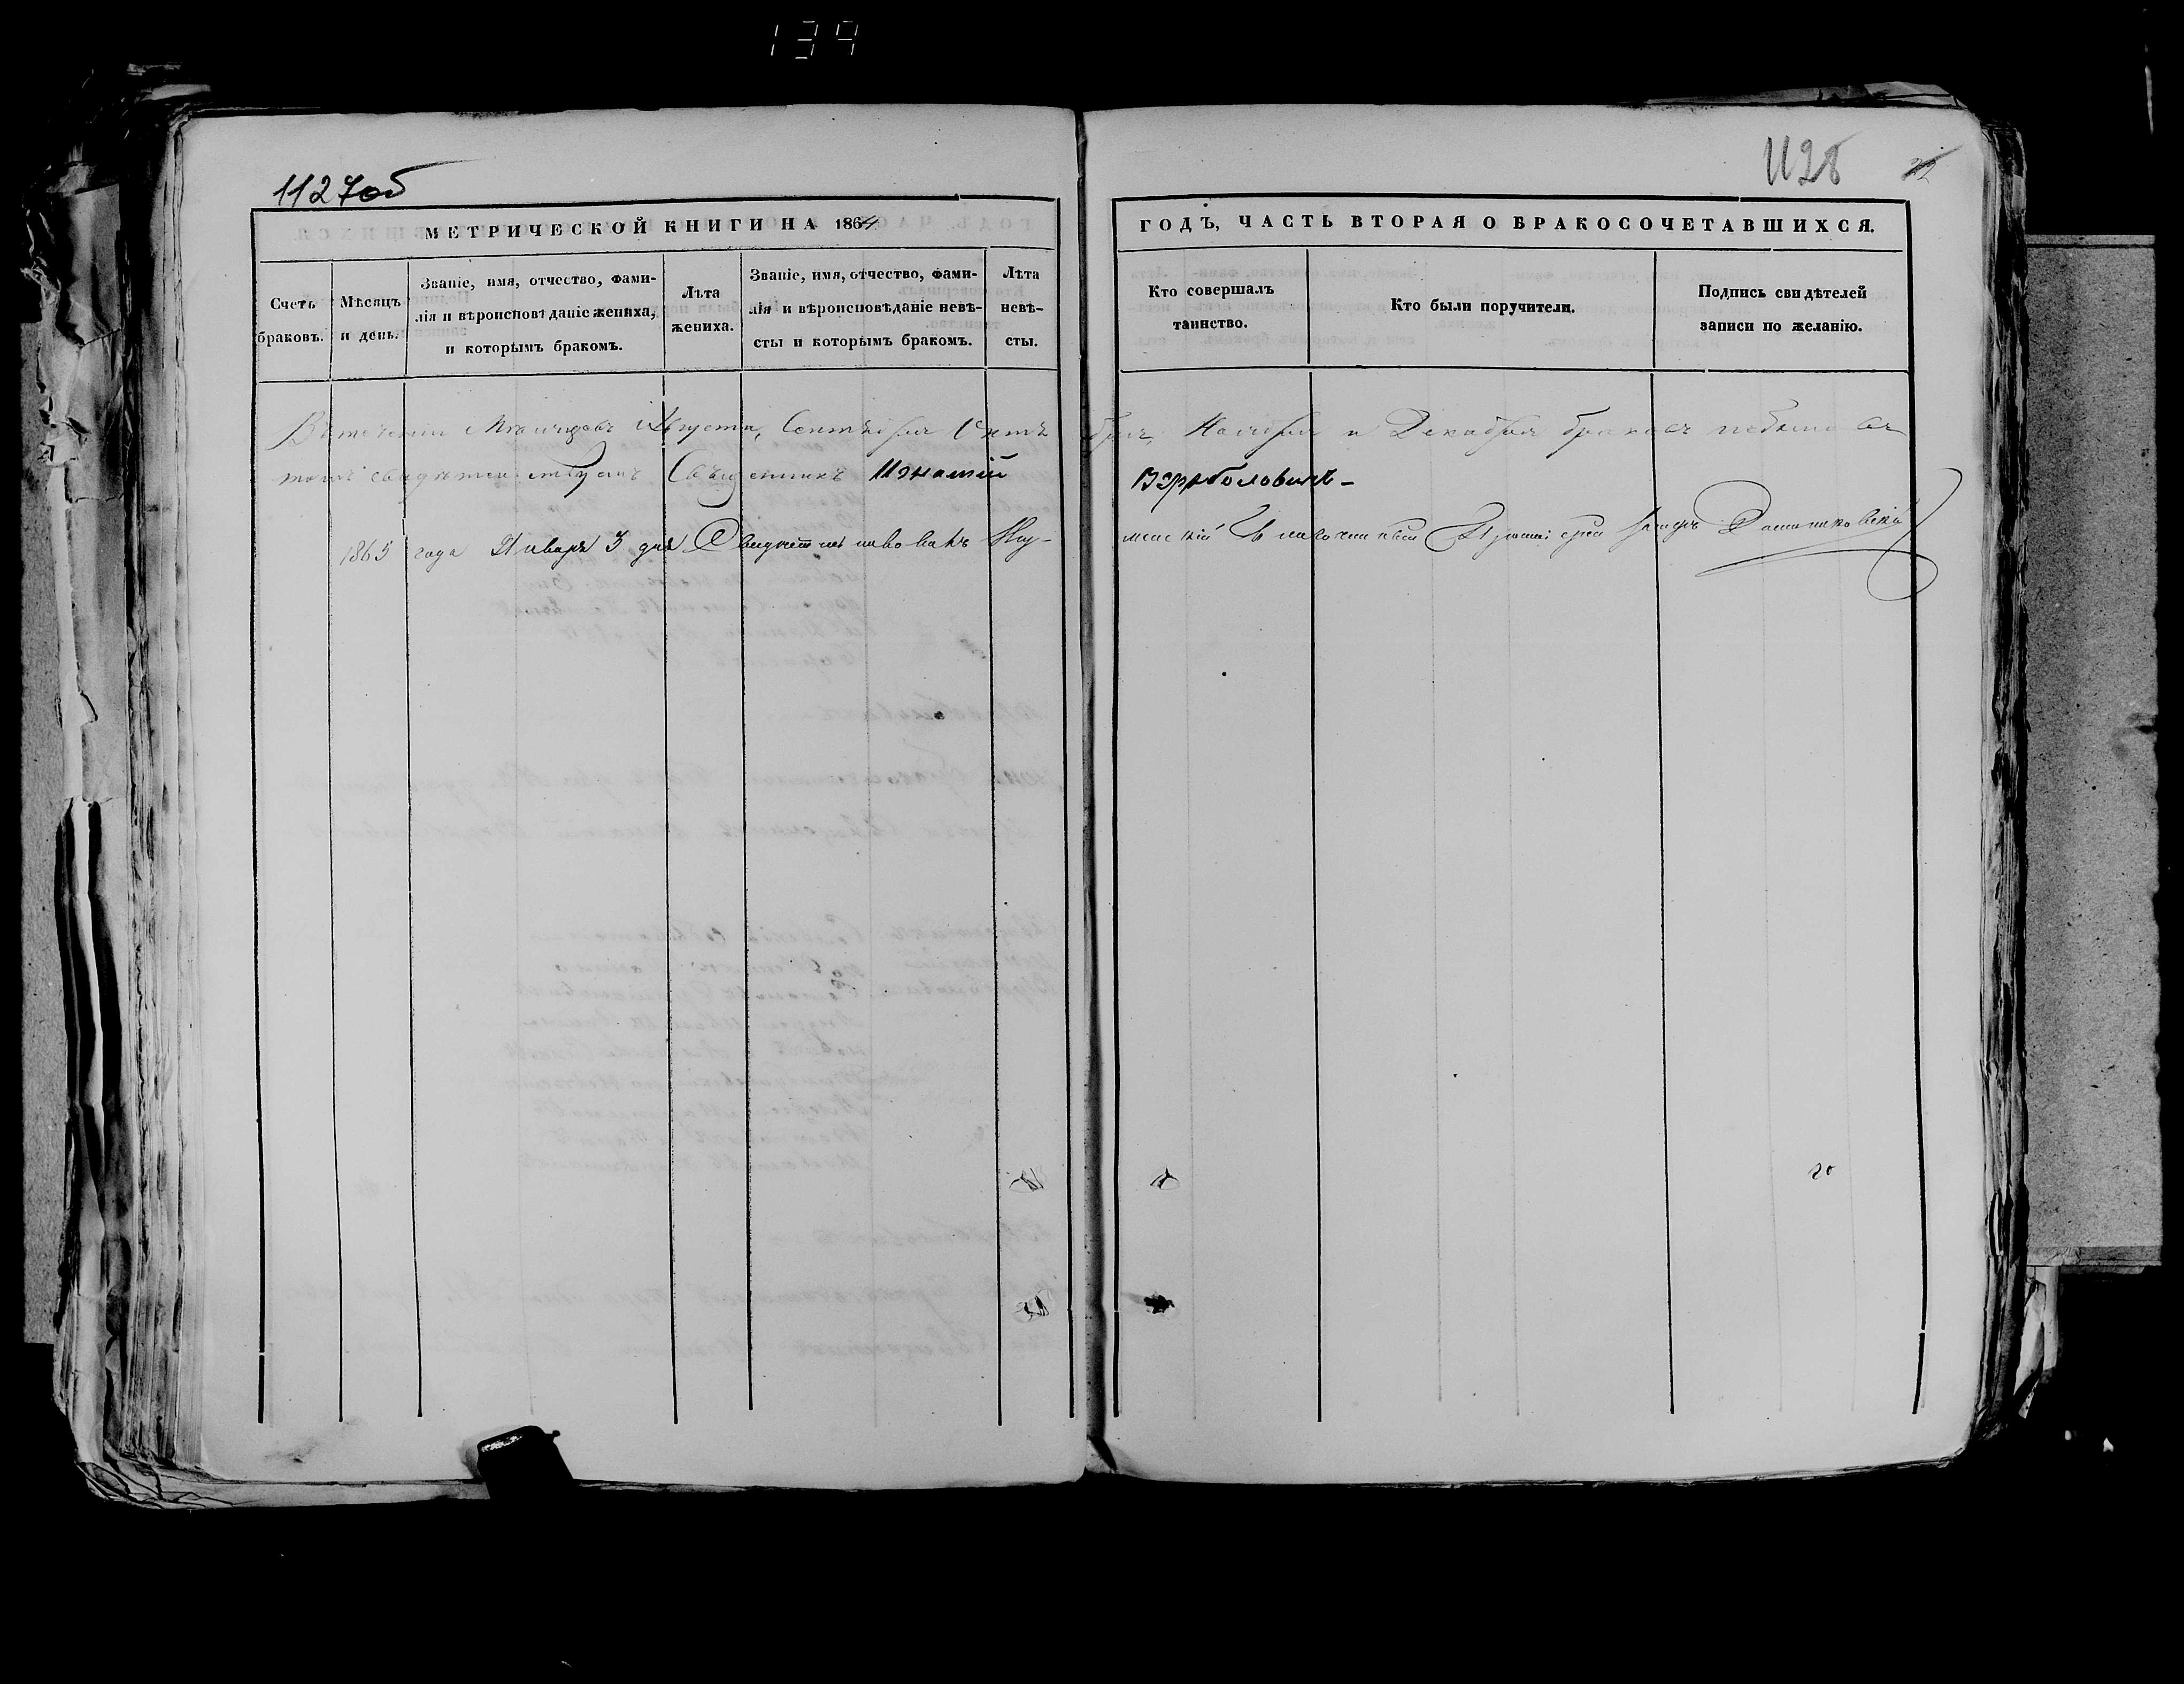 139
1127об
1128
22
МЕТРИЧЕСКОЙ КНИГИ НА 1864
ГОДЪ, ЧАСТЬ ВТОРАЯ О БРАКОСОЧЕТАВШИХСЯ.
Счетъ браковъ.
Мѣсяцъ и день.
Званіе, имя, отчество, фами-
лія и вѣроисповѣданіе жениха,
и которымъ бракомъ.
Лѣта жениха.
Званіе, имя, отчество, фами-
лія и вѣроисповѣданіе невѣ-
сты и которымъ бракомъ.
Лѣта невѣ-
сты.
Кто совершалъ
таинство.
Кто были поручители.
Подпись свидѣтелей
записи по желанію.
Втеченіи Мѣсяцовъ Августа, Сентября Октя бря, Ноября и Декабря браковъ небыло въ
томъ свидѣтельствуетъ Священникъ Игнатій Вэрбаловичъ
1865 года Января 3 дня Свидѣтельствовалъ Благочинный
20